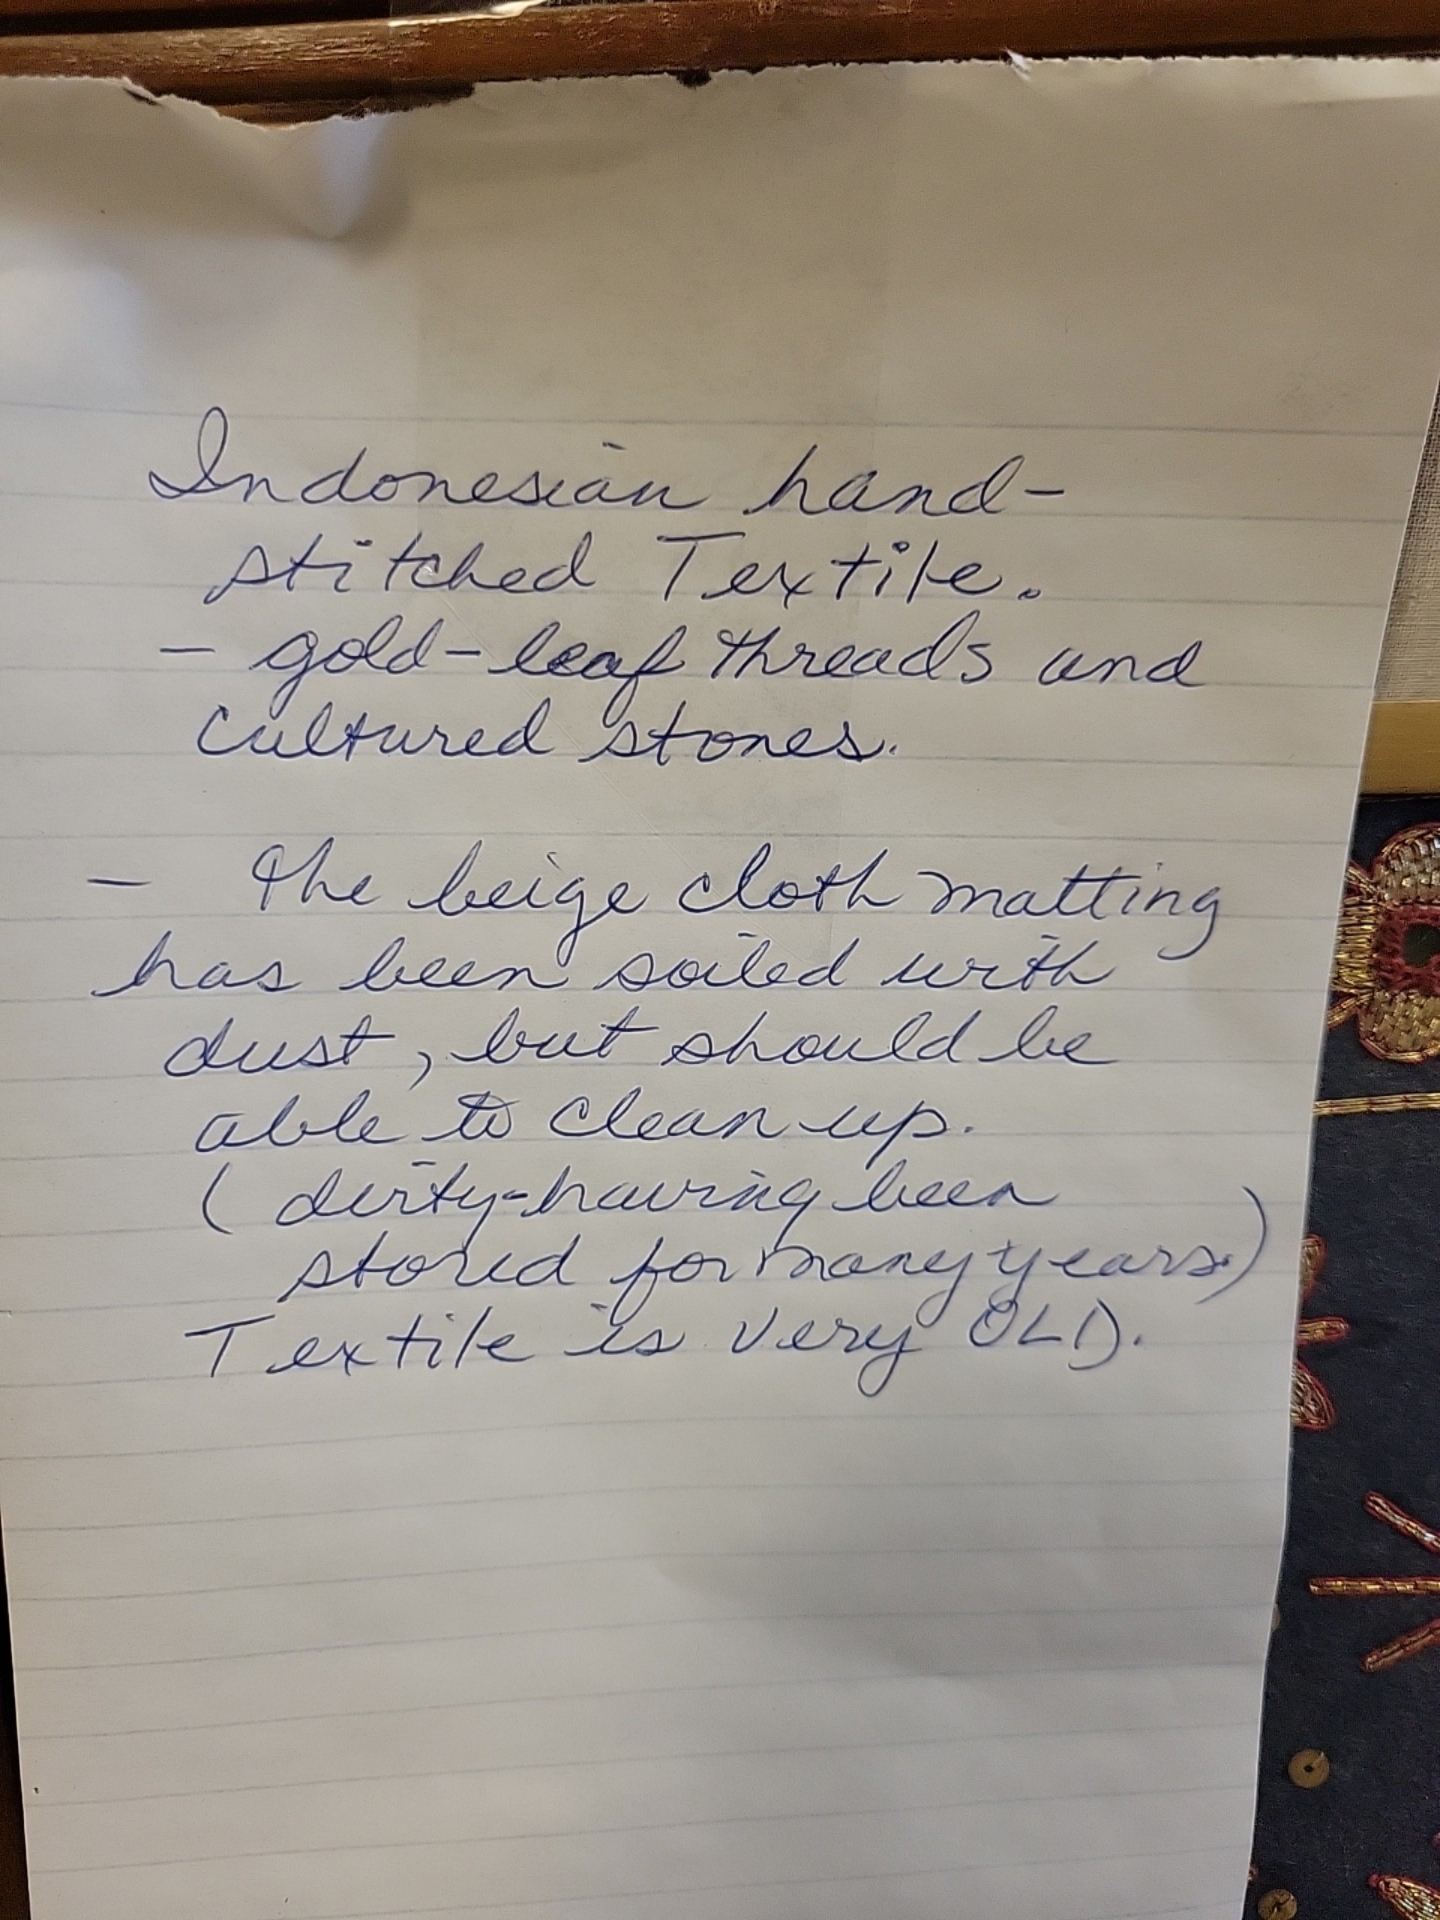 Indonesian hand-
stitched Textile.
- gold-leaf threads and
cultured stones.
- The beige cloth matting
has been soiled with
dust, but should be
able to clean up.
( dirty-having been
stored for many years.)
Textile is very OLD.